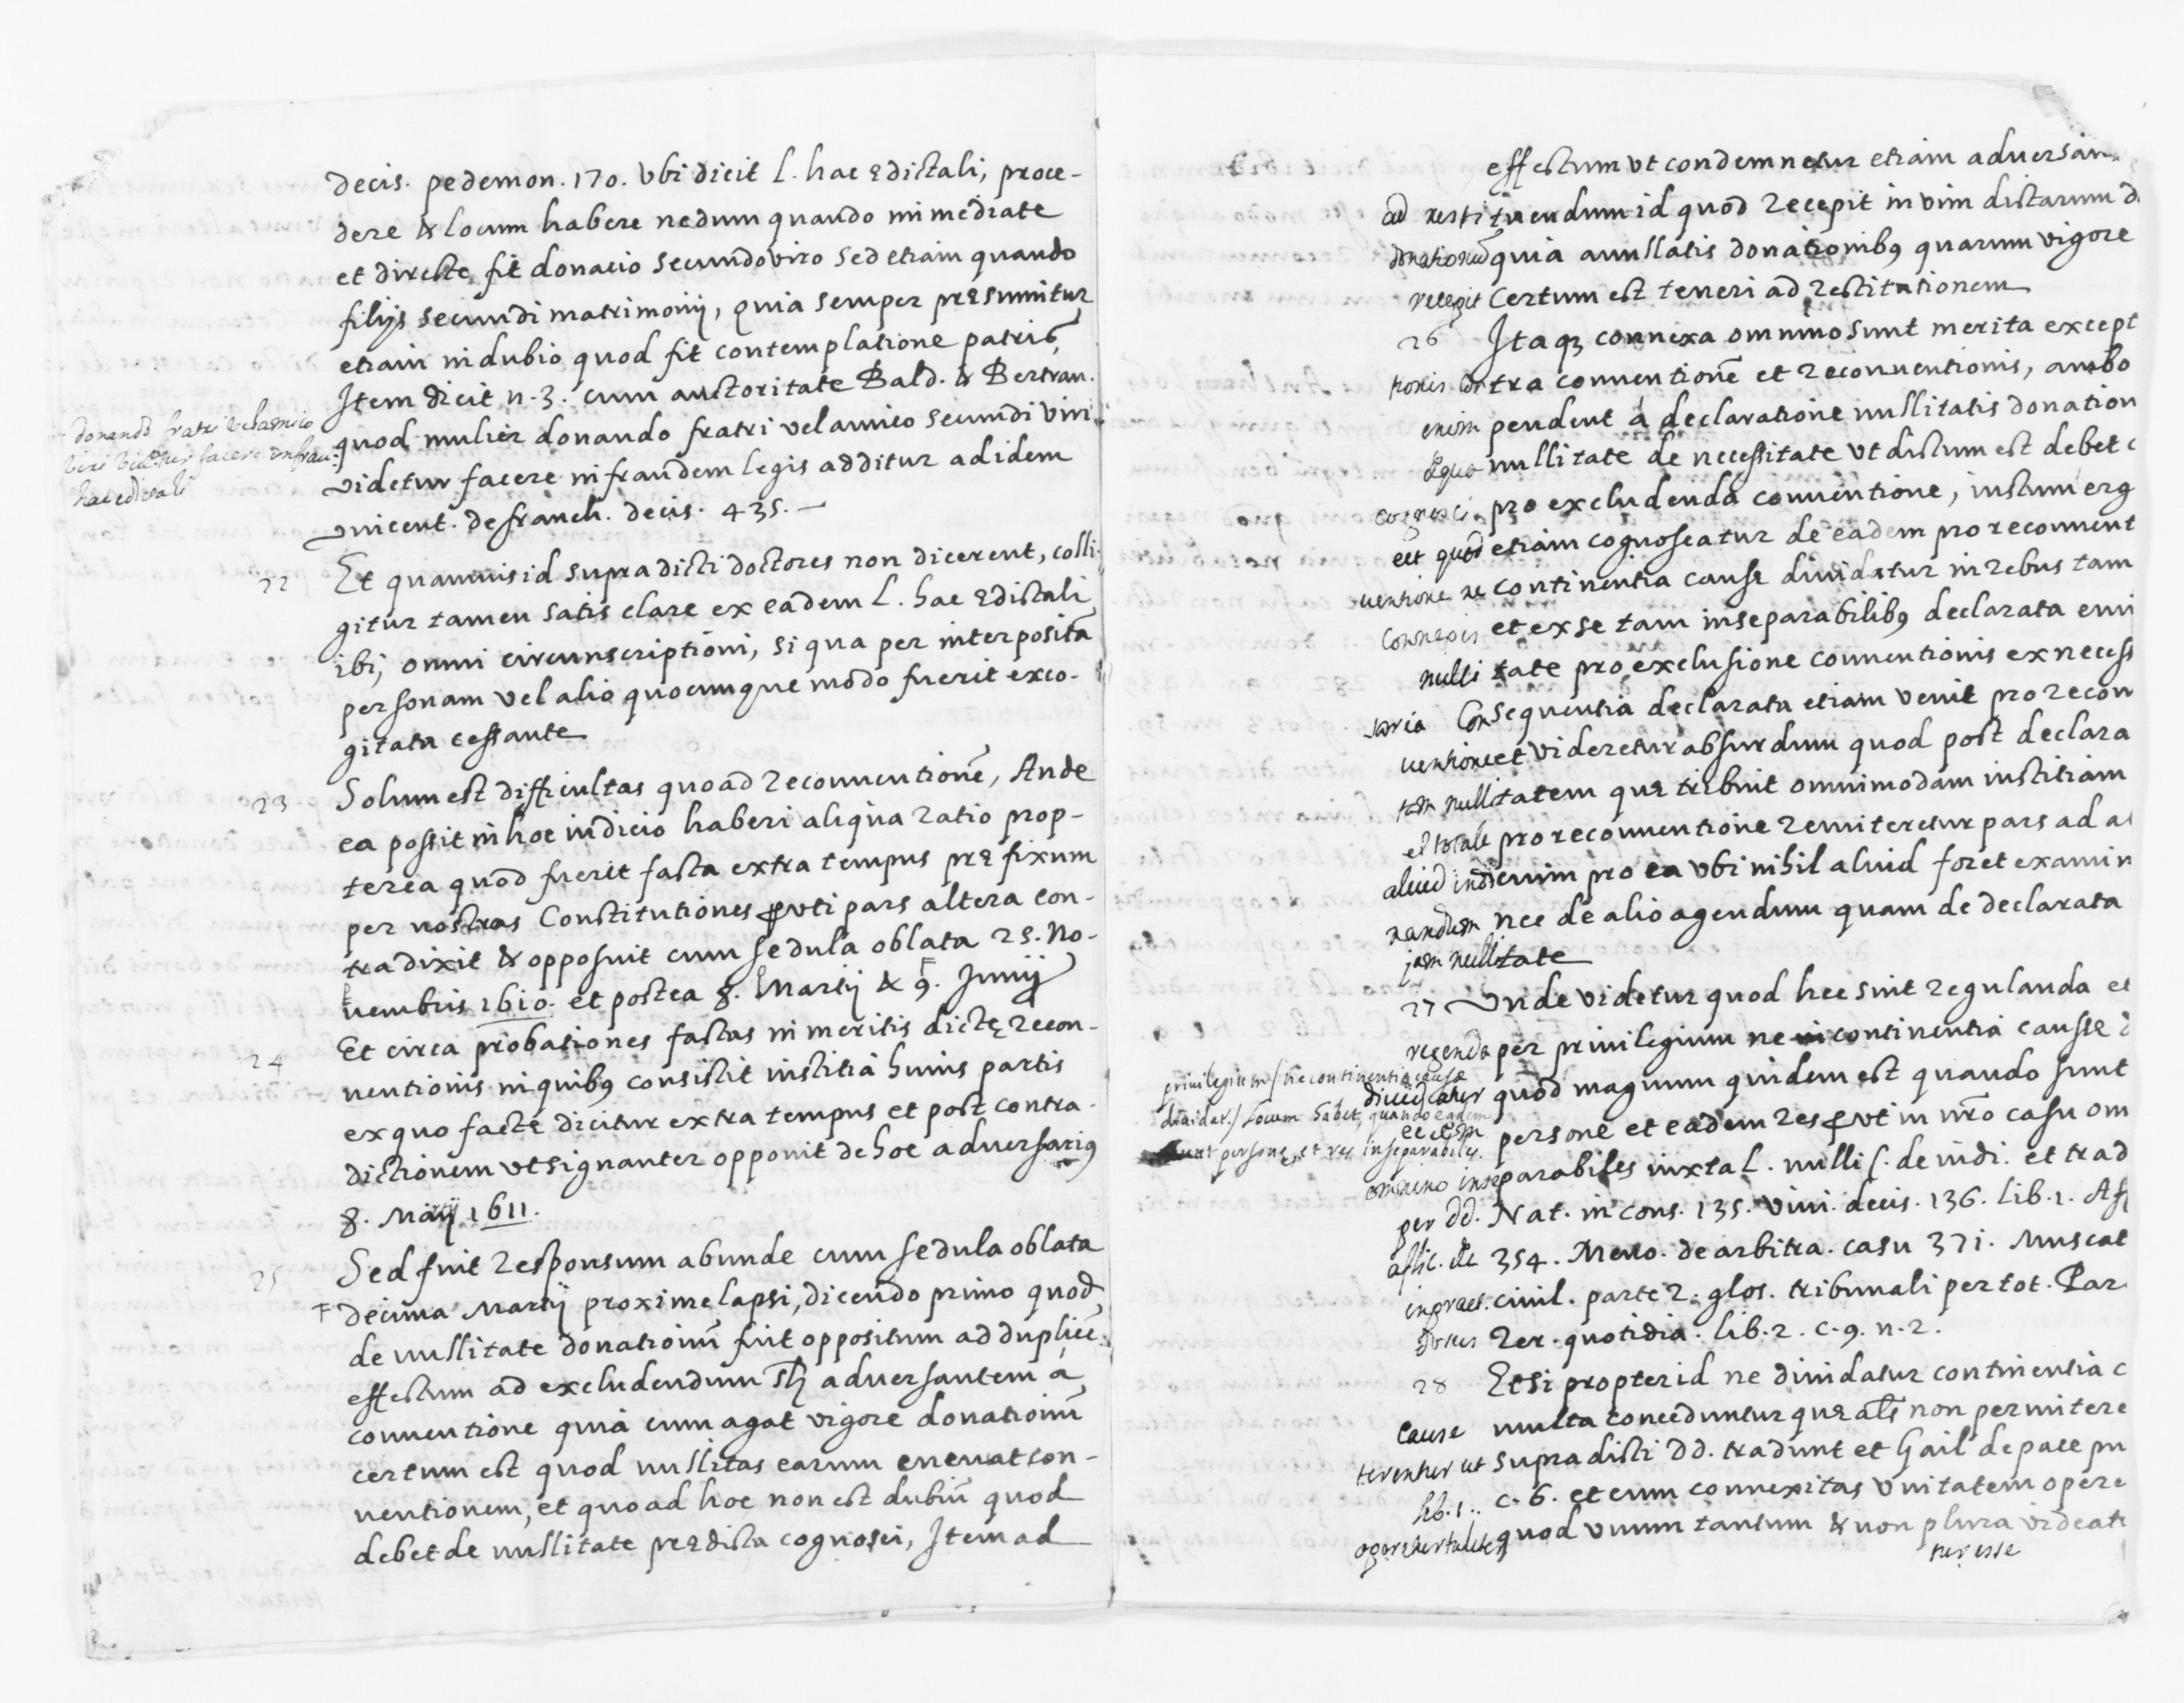 decis. pedemon. 170. Vbi dicit l. hac ędictali, proce-
dere & locum habere nedum quando inmediate
et directe fit donacio secundo viro sed etiam quando
filijs secundi matrimonij, quia semper pręsumitur
etiam in dubio quod fit contemplatione patris,
Item dicit n. 3. cum auctoritate Bald. & Bertran.
quod mulier donando fratri vel amico secundi viri
videtur facere in fraudem legis additur ad idem
vincent. de franch. decis. 435.
donando fratri vel amico
viri videtur facere in frau:
hac edictali
22 Et quamuis id supra dicti doctores non dicerent, colli-
gitur tamen satis clare ex eadem l. hac ędictali
ibi, omni circunscriptioni, si qua per interpositã
personam vel alio quocumque modo fuerit exco-
gitata cessante
23 Solum est difficultas quoad reconuentionẽ, An de
ea possit in hoc iudicio haberi aliqua ratio prop-
terea quod fuerit facta extra tempus pręfixum
per nostras Constitutiones prvti pars altera con-
tradixit & opposuit cum sedula oblata 25. No-
uembris 1610. et postea 8. Martij & 9. Junij
24 Et circa probationes factas in meritis dictę recon-
uentionis in quibꝯ consistit iustitia huius partis
ex quo facte dicitur extra tempus et post contra-
dictionem vt signanter opponit de hoc aduersariꝯ
8. Martij 1611.
25 Sed fuit responsum abunde cum sedula oblata
decima Martij proxime lapsi, dicendo primo quod
de nullitate donationũ fuit oppositum ad duplicẽ
effectum ad excludendum aduersantem á
conuentione quia cum agat vigore donationũ
certum est quod nullitas earum eneruat con-
uentionem, et quoad hoc non est dubiũ quod
debet de nullitate prędicta cognosci, Item ad
effectum vt condemnetur etiam aduersan
ad restituendum id quod recepit in vim dictarum d
donationũ quia anullatis donationibꝯ quarum vigore
recepit certum est teneri ad restitutionem
26 Itaqꝫ connexa omnino sunt merita except
tionis contra conuentionẽ et reconuentionis, ambo
enim pendent á declaratione nullitatis donation
de qua nullitate de necessitate vt dictum est debet c
cognosci pro excludenda conuentione, iustum erg
est quod etiam cognoscatur de eadem pro reconuent
uentione ne continentia causę diuidatur in rebus tam
connexis et ex se tam inseparabilibꝯ declarata eni
nullitate pro exclusione conuentionis ex necess
saria consequentia declarata etiam venit pro recon
uentione et videretur absurdum quod post declara
tam nullitatem quę tribuit omnimodam iustitiam
et totale pro reconuentione remiteretur pars ad a
aliud iudicium pro ea vbi nihil aliud foret examin
nandum nec de alio agendum quam de declarata
jam nullitate
27 Vnde videtur quod hec sint regulanda et
regenda per priuilegium ne continentia causę d
diuidatur quod magnum quidem est quando sunt
eędem persone et eadem res prvt in nr̃o casu om
omnino inseparabiles iuxta l. nulli C. de iudi. et trad
per dd. Nat. in cons. 135. vini. decis. 136. lib. 1. Aff
afflic. dec 354. Meno. de arbitra. casu 371. Muscat
in prac. ciuil. parte 2. glos. tribunali per tot. Par
dorus rer. quotidia. lib. 2. c. 9. n. 2.
priuilegium / ne continentia causę
diuidat. / locum habet, quando eadem
sunt personę, et res inseparabiles.
28 Et si propter id ne diuidatur continentia c
cause multa conceduntur quę als̃ non permitere
terentur ut supra dicti dd. tradunt et Gail de pace pu
lib. 1. c. 6. et cum connexitas vnitatem opere
operetur taliter quod vnum tantum & non plura videat
tur esse